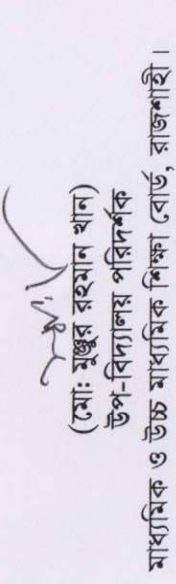 (মোঃ মুঞ্জুর রহমান খান)
উপ-বিদ্যালয় পরিদর্শক
মাধ্যমিক ও উচ্চ মাধ্যমিক শিক্ষা বোর্ড, রাজশাহী।